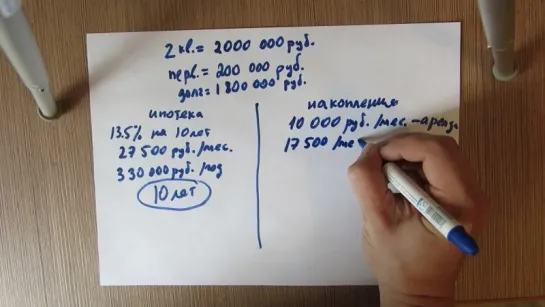 2 кв. = 2000 000 руб.
перв. = 200 000 руб.
долг = 1 800 000 руб.
ипотека
13.5% на 10 лет
27 500 руб./мес.
330 000 руб./год
10 лет
накопления
10 000 руб./мес. - аренда
17 500 /ме